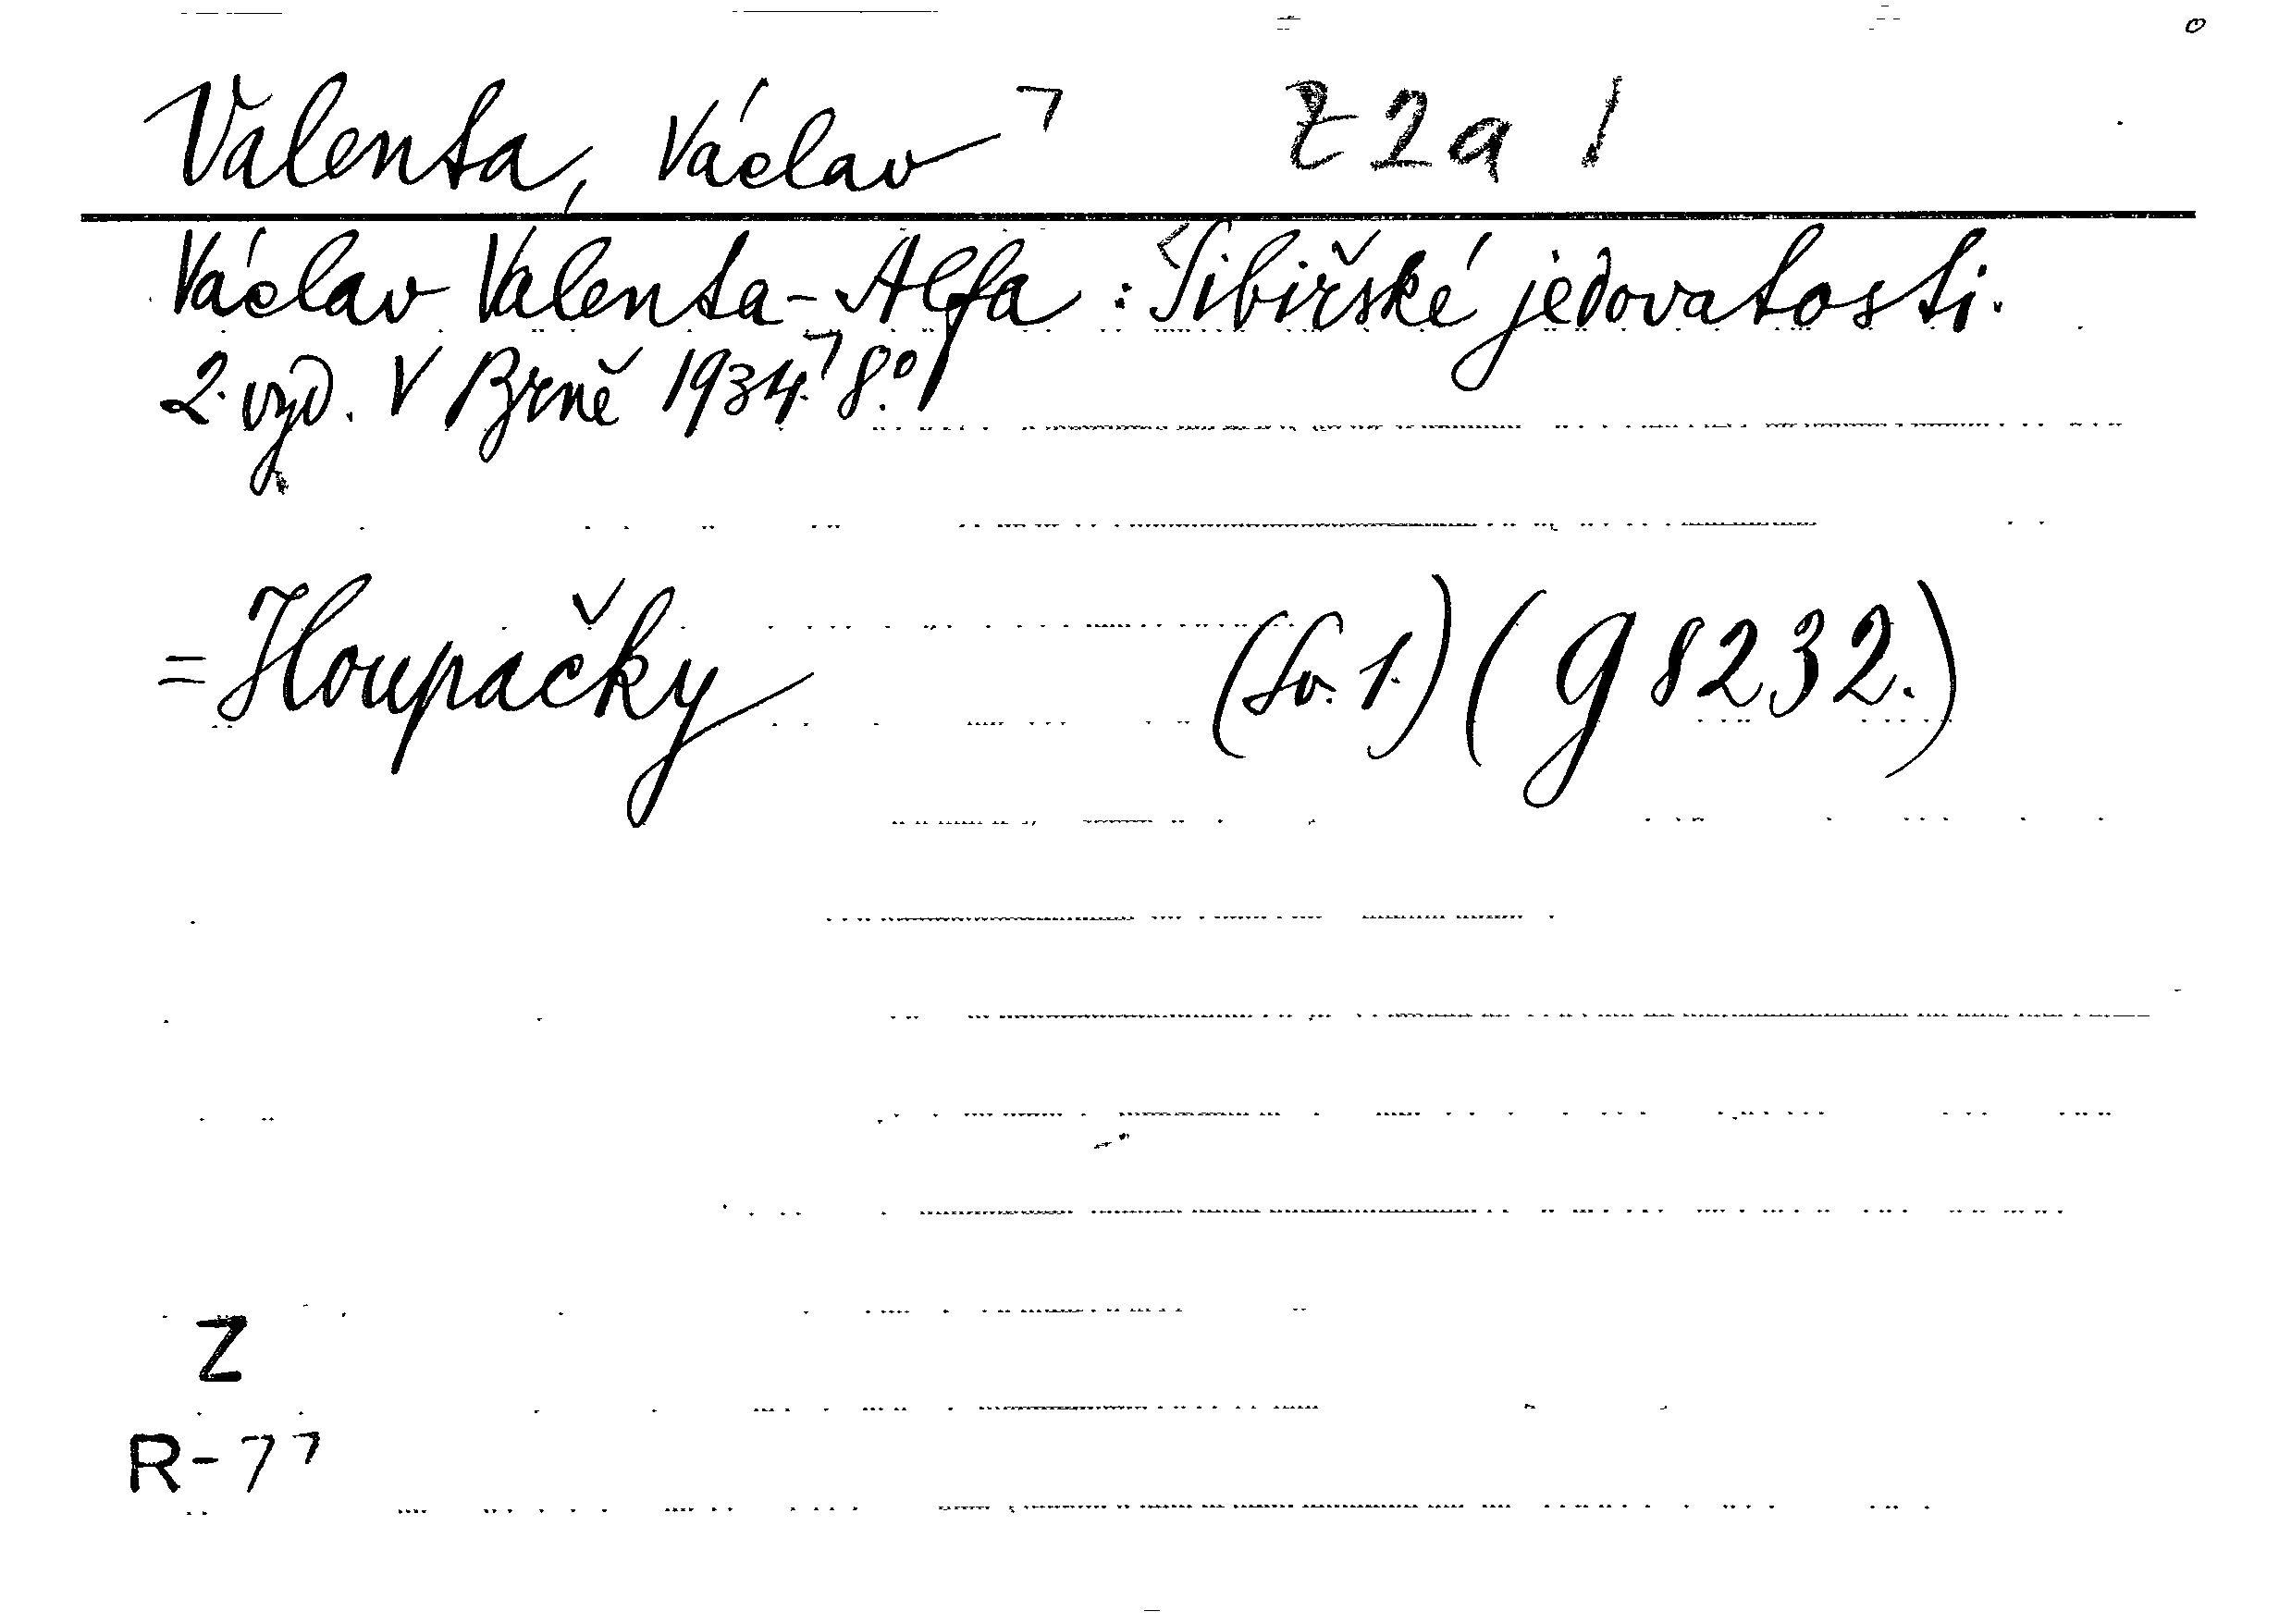 Valenta, Václav ⌝ Z 2 a 1
Václav Valenta-Alfa : Sibiřské jedovatosti.
2. vyd. V Brně 1934.⌝ 8.°
= Houpačky (Sv. 1.) ( g 8232.)
Z
R-77